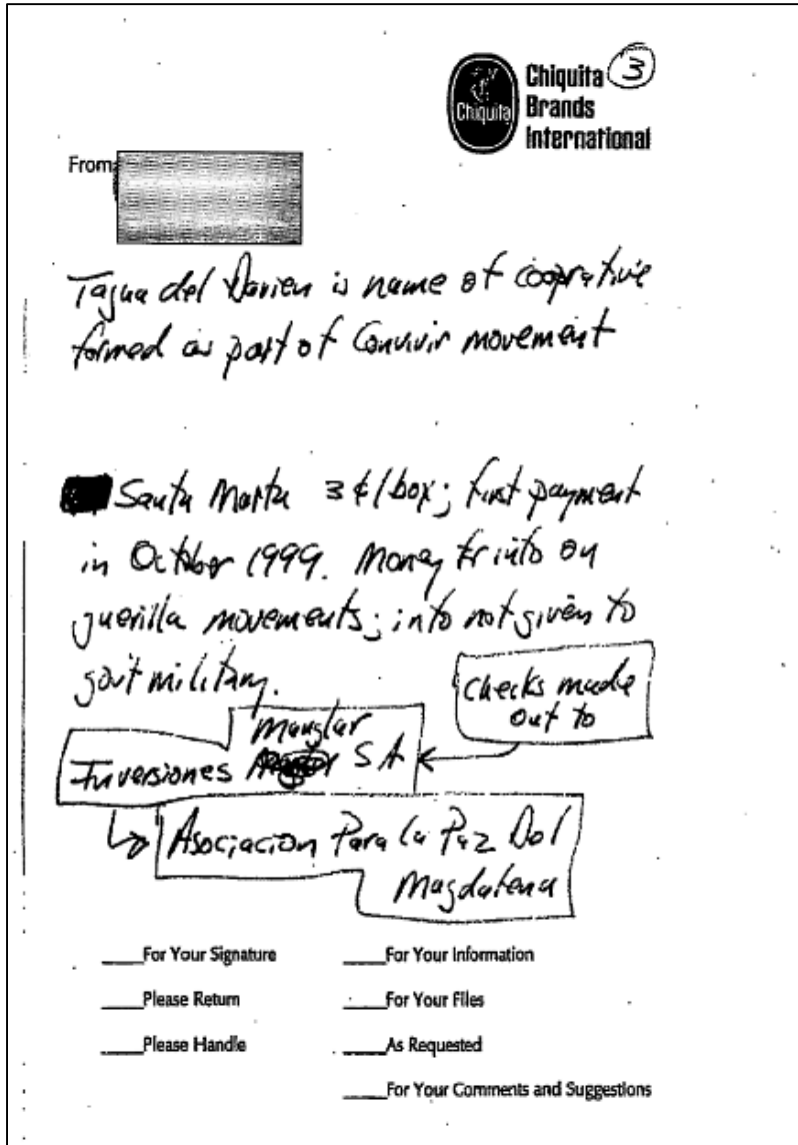 Chiquita
Brands
International
3
Chiquita
From
Tagua del Darien is name of cooprative
formed as part of Convivir movement
Santa Marta 3¢/box; first payment
in October 1999. Money for info on
guerilla movements; info not given to
gov't military.
checks made
out to
Manglar
Inversiones SA
Asociacion Para la Paz Del
Magdalena
____For Your Signature ____For Your Information
____Please Return ____For Your Files
____Please Handle ____As Requested
____For Your Comments and Suggestions